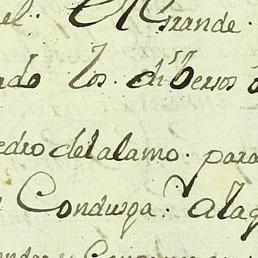 el. El Grande.
ado los. diversos
edro del alamo. para
Condusga: alag